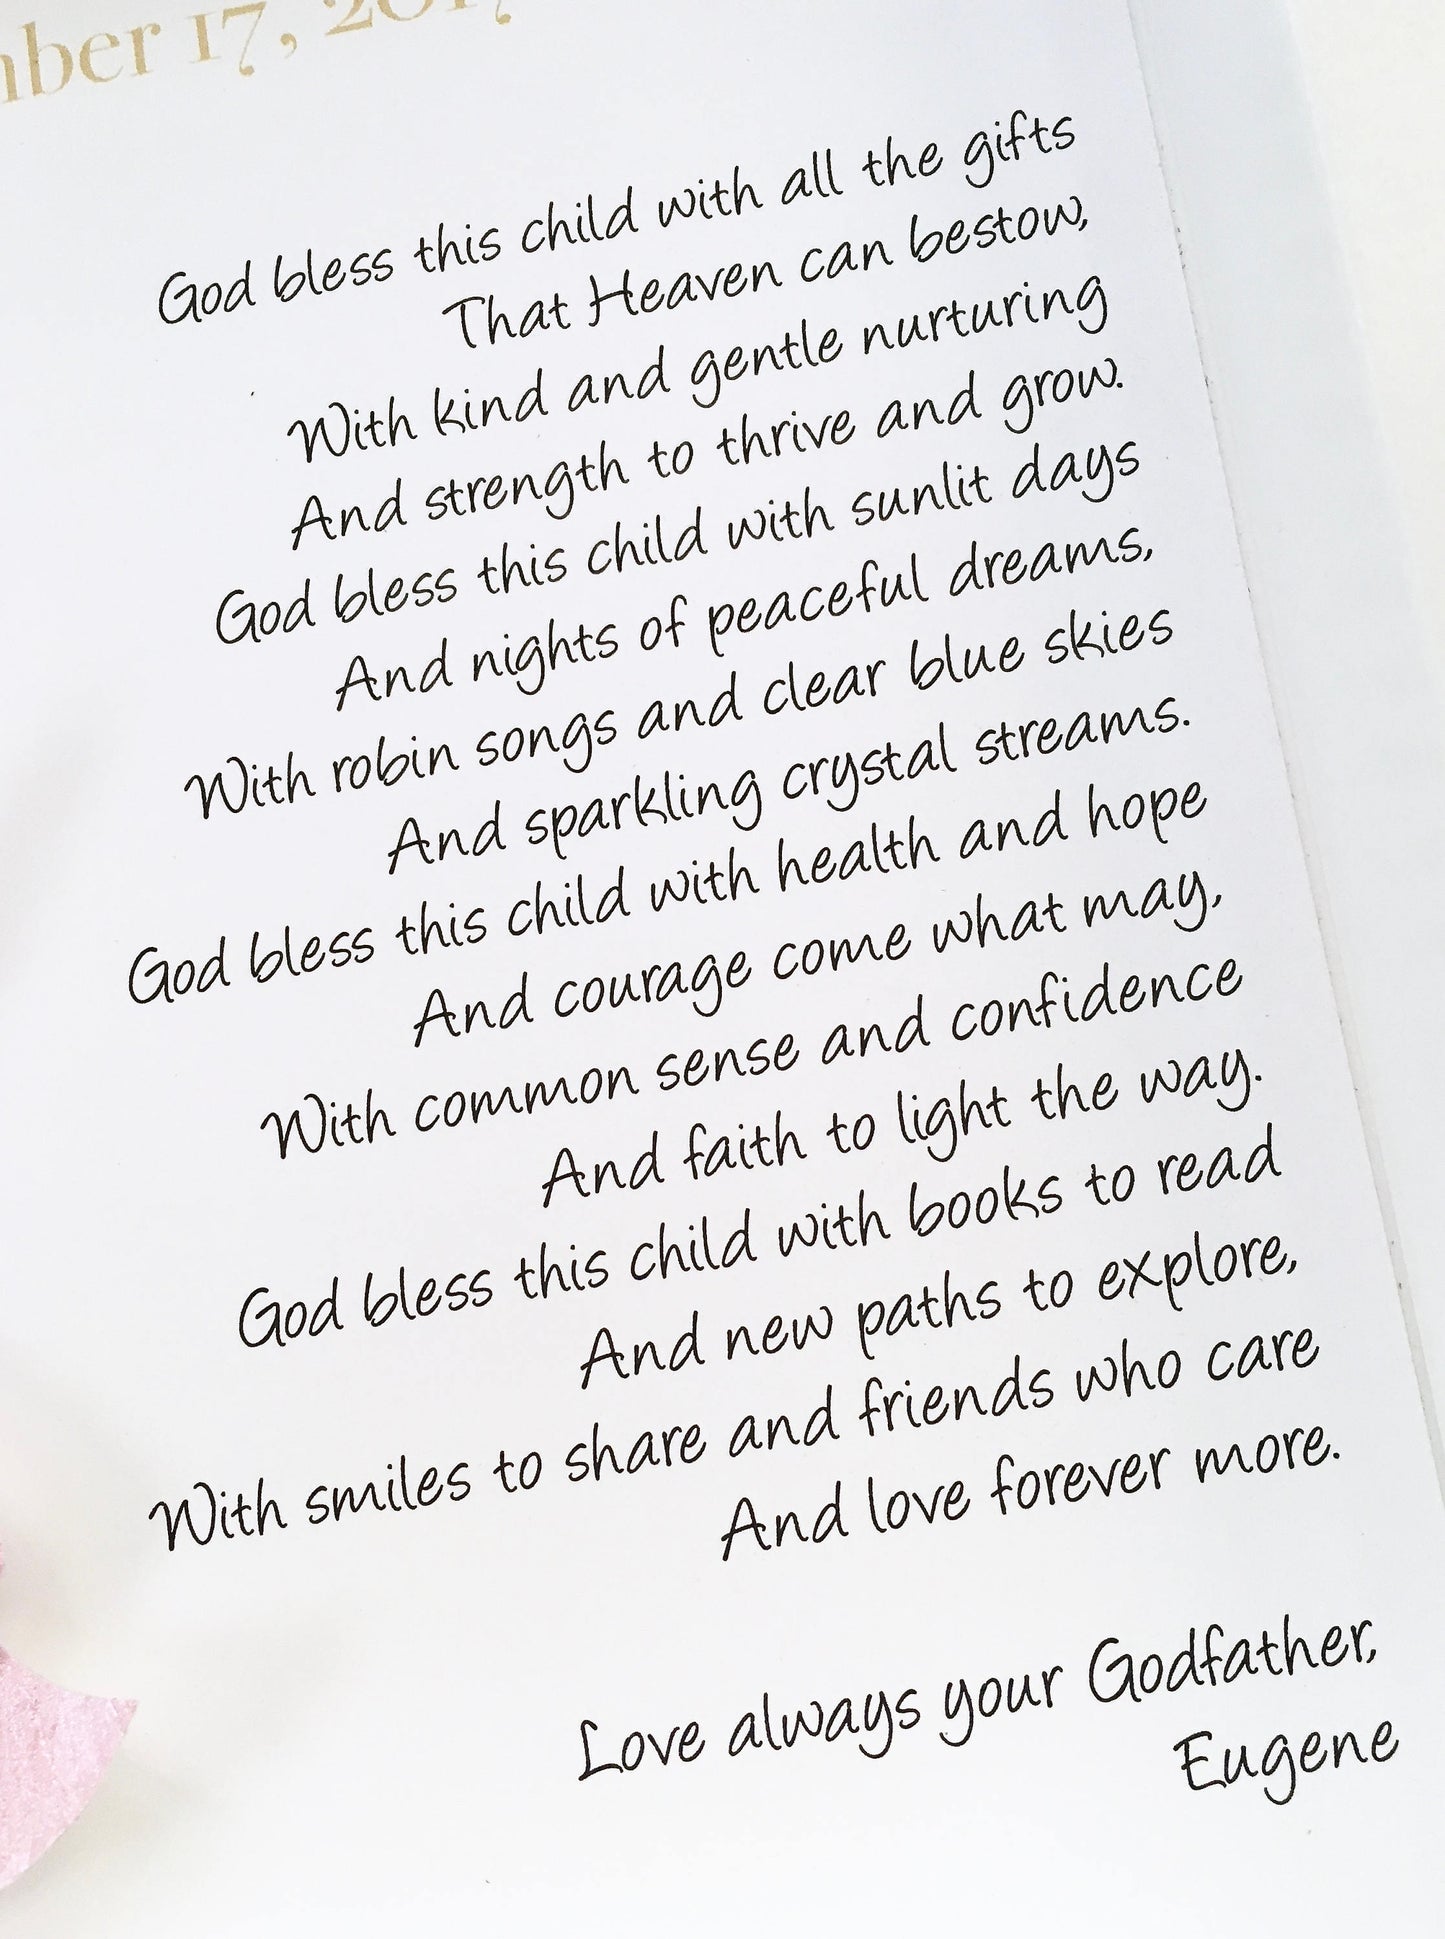 17, 2017
God bless this child with all the gifts
That Heaven can bestow,
With kind and gentle nurturing
And strength to thrive and grow.
God bless this child with sunlit days
And nights of peaceful dreams,
With robin songs and clear blue skies
And sparkling crystal streams.
God bless this child with health and hope
And courage come what may,
With common sense and confidence
And faith to light the way.
God bless this child with books to read
And new paths to explore,
With smiles to share and friends who care
And love forever more.
Love always your Godfather,
Eugene